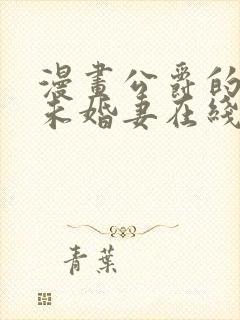 漫畫公爵的
未婚妻在綫
青葉